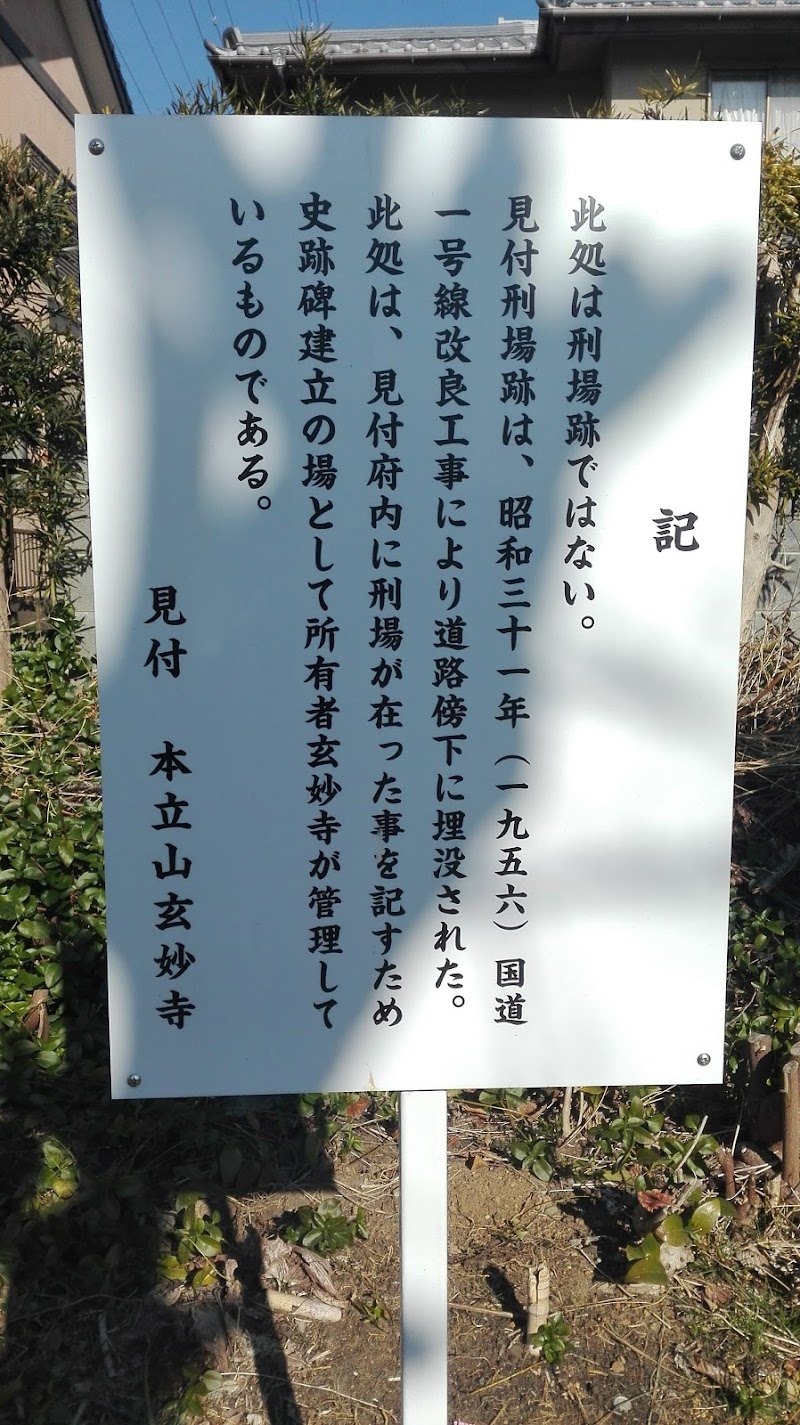 記
此処は刑場跡ではない。
見付刑場跡は、昭和三十一年（一九五六）国道
一号線改良工事により道路傍下に埋没された。
此処は、見付府内に刑場が在った事を記すため
史跡碑建立の場として所有者玄妙寺が管理して
いるものである。
見付　本立山玄妙寺